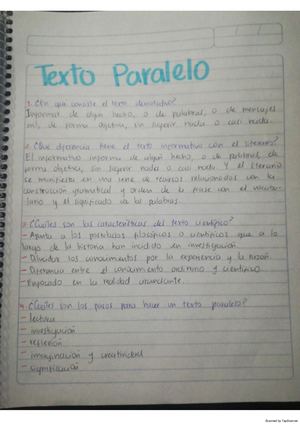 Texto Paralelo
1. ¿En que consiste el texto denotativo?
Informar de algun hecho, o de palabras, o de mensajes
de forma objetiva, sin sugerir nada o casi nada.
2. ¿Que diferencia tiene el texto informativo con el literario?
El informativo informa de algun hecho, o de palabras, de
forma objetiva, sin sugerir nada o casi nada. Y el literario
se manifiesta en una serie de recursos relacionados con la
construcción gramatical y orden de la frase con el
y el significado de las palabras.
3. ¿Cuáles son las características del texto científico?
los postulados filosóficos o científicos que a lo
largo de la historia han incidido en investigación.
los conocimientos por la experiencia y la razón.
- Diferencia entre el conocimiento ordinario y científico.
- Enfocado en la realidad circundante.
4. ¿Cuáles son los pasos para hacer un texto paralelo?
- lectura
- investigación
- reflexión
- imaginación y creatividad
- significación
Scanned by TapScanner